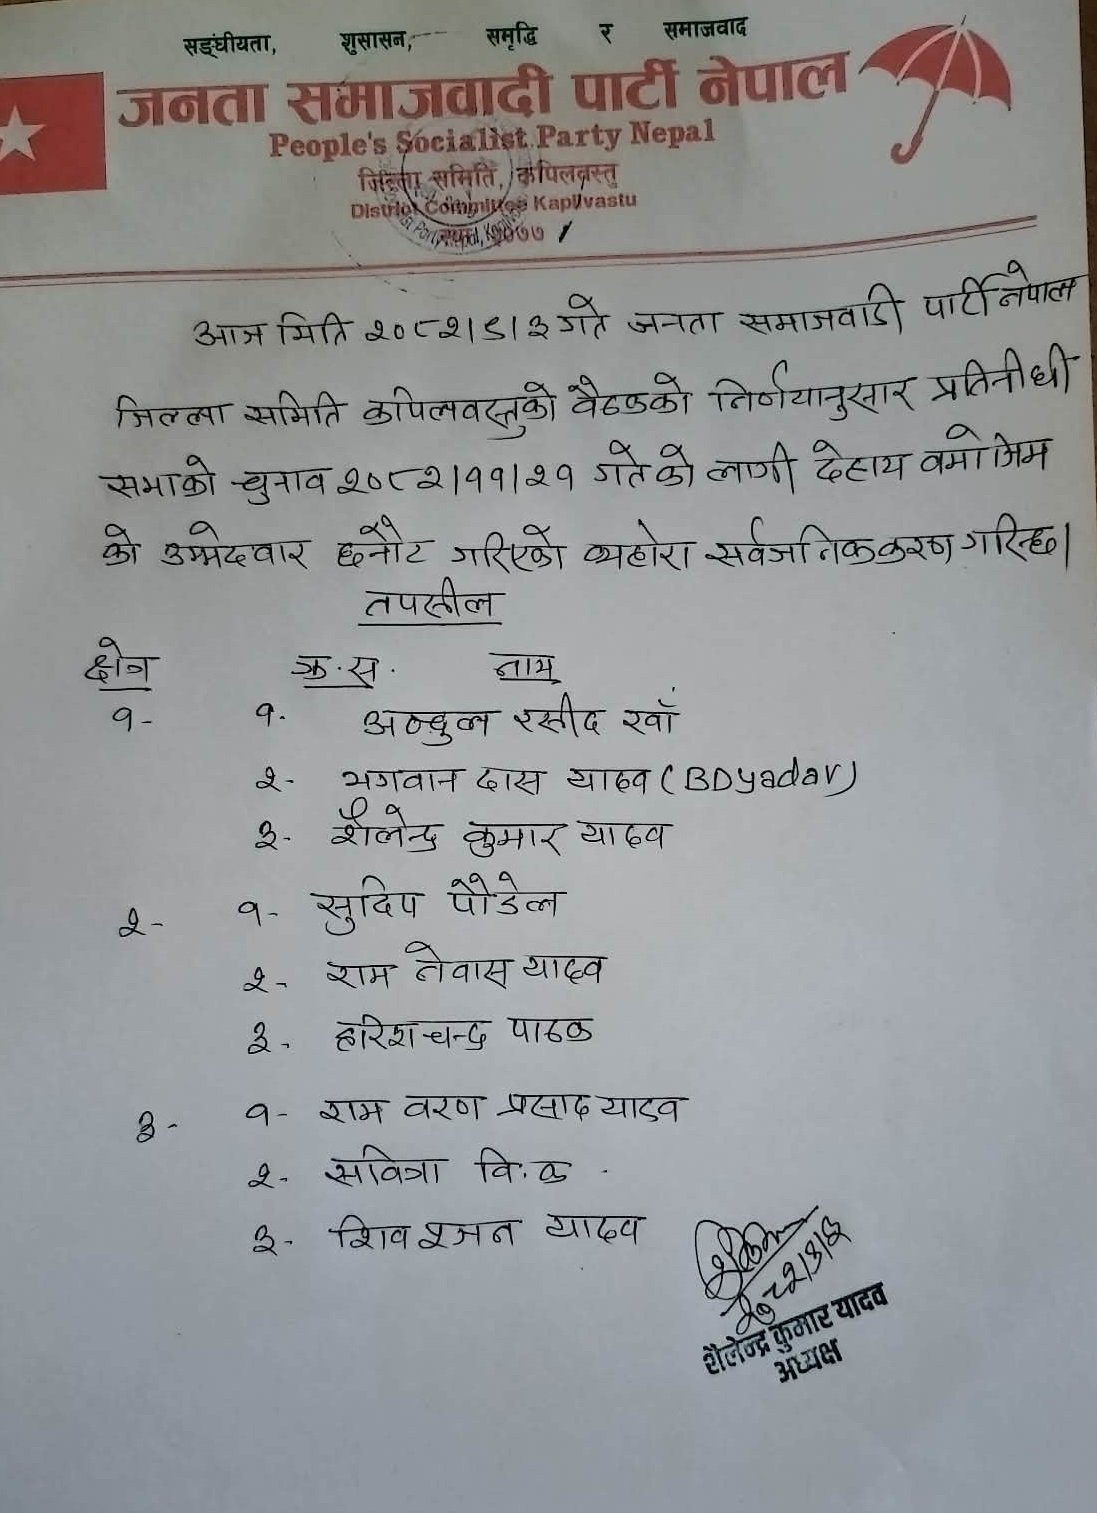 सङ्घीयता, सुशासन, समृद्धि र समाजवाद
जनता समाजवादी पार्टी नेपाल
People's Socialist Party Nepal
जिल्ला समिति, कपिलवस्तु
District Committee Kapilvastu
२०७७
आज मिति २०८२।९।३ गते जनता समाजवादी पार्टी नेपाल
जिल्ला समिति कपिलवस्तुको बैठकको निर्णयानुसार प्रतिनीधी
सभाको चुनाव २०८२।११।२१ गतेको लागी देहाय वमोजिम
को उम्मेदवार छनौट गरिएको व्यहोरा सर्वजनिककरण गरिन्छ।
तपसील
क्षेत्र क्र.स. नाम
१- १. अब्दुल रसीद खाँ
२- भगवान दास यादव (BDyadav)
३- शैलेन्द्र कुमार यादव
२- १- सुदिप पौडेल
२- राम नेवास यादव
३- हरिशचन्द्र पाठक
३- १- राम वरण प्रसाद यादव
२- सवित्रा वि.क
३- शिव श्जन यादव
शैलेन्द्र कुमार यादव
अध्यक्ष